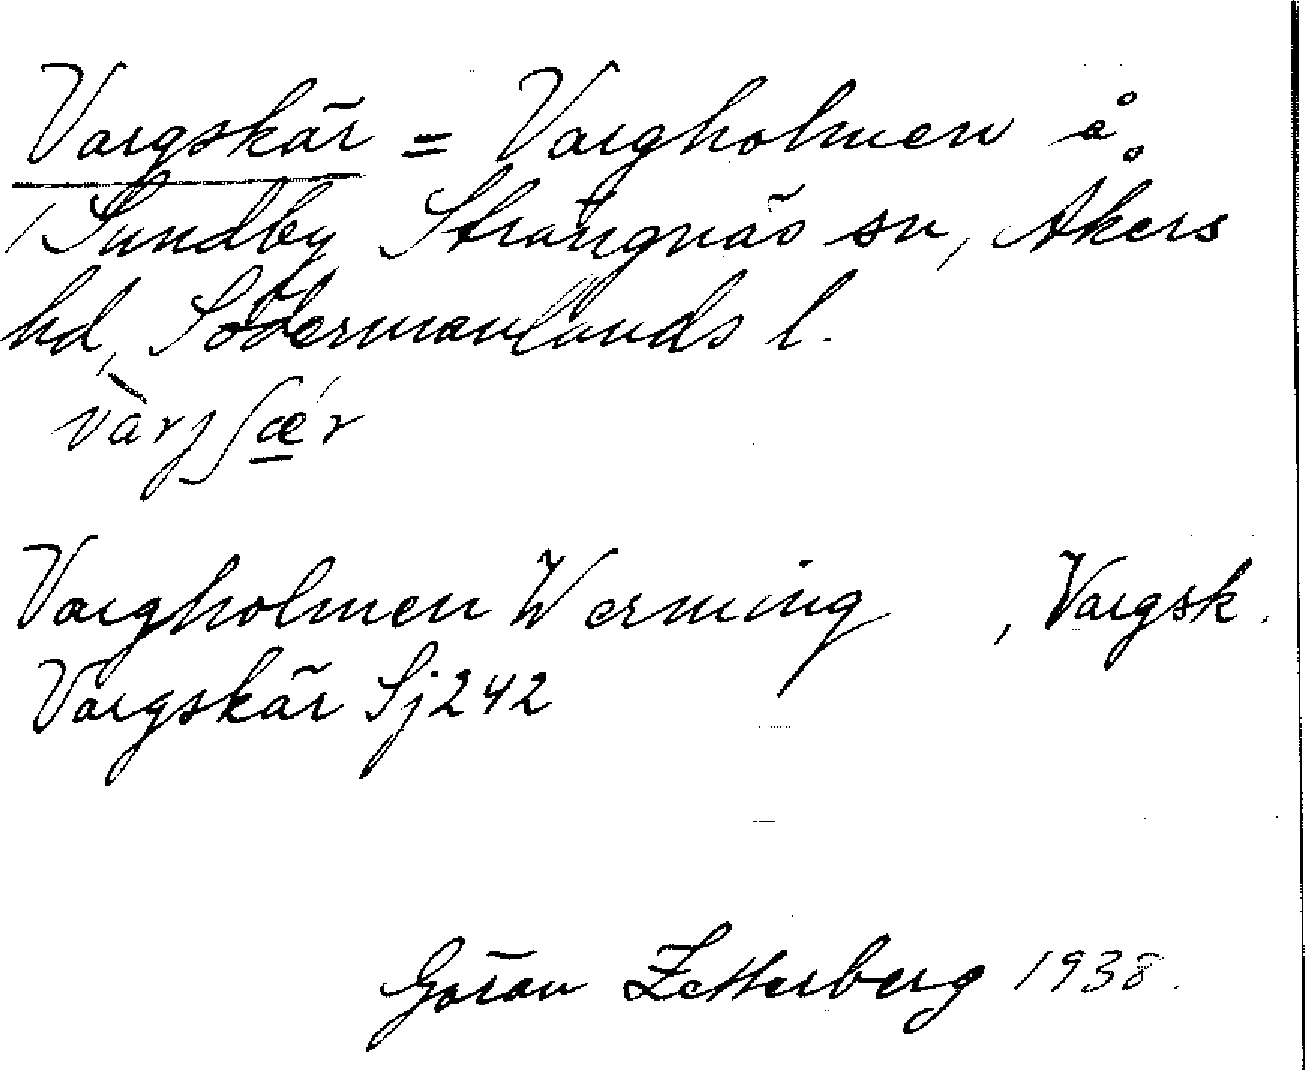 Vargskär = Vargholmen å
/ Sundby Strängnäs sn, Åkers
hd, Södermanlands l.
vàrjʃǽ̠r
Vargholmen Werming , Vargsk.
Vargskär Sj242
Göran Zetterberg 1938.